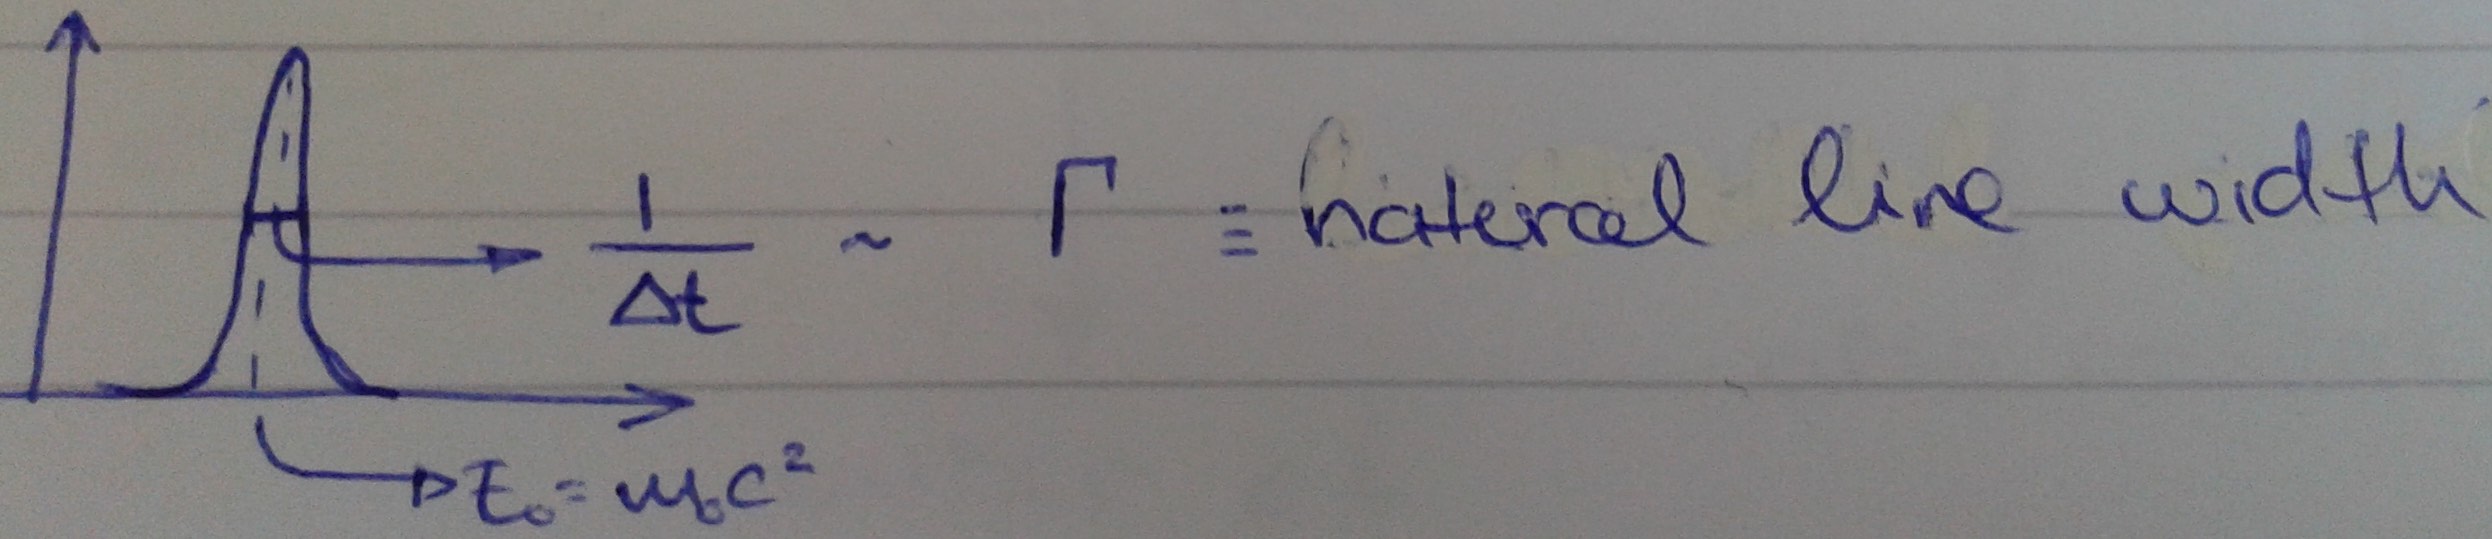 1/Δt ~ Γ ≡ natural line width
E₀ = m₀c²